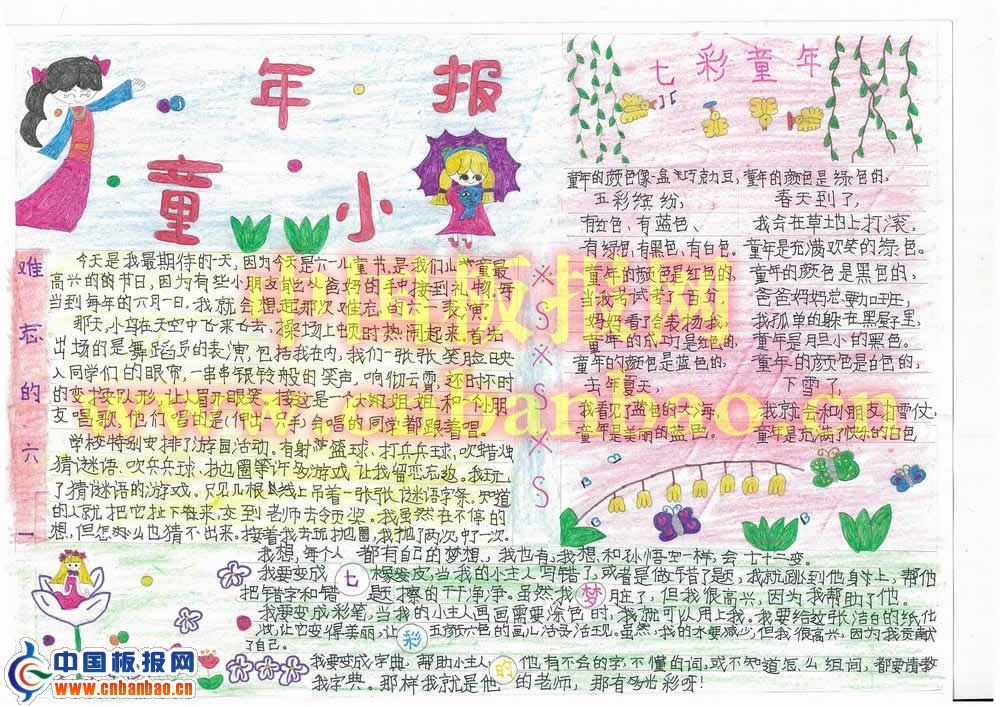 年 报
童 小
七 彩 童 年
难忘的六一
今天是我最期待的一天,因为今天是六一儿童节,是我们儿童最
高兴的的节日,因为有些小朋友能从爸妈的手中接到礼物,每
当到每年的六月一日,我就会想起那次难忘的六一表演。
那天,小鸟在天空中飞来飞去,操场上顿时热闹起来,首先
出场的是舞蹈员的表演,包括我在内,我们一张张笑脸映
入同学们的眼帘,一串串银铃般的笑声,响彻云霄,还时不时
的变换队形,让人眉开眼笑。接这是一个大姐姐和一个小朋
友唱歌,他们唱的是
合唱的同学都跟着唱。
学校特别安排了游园活动。有射篮球、打乒乓球、吹蜡烛
猜谜语、吹乒乓球、抛圈等许多游戏让我留恋忘返。我玩
了猜谜语的游戏。只见几根线上吊着一张张谜语字条,知道
的人就把它扯下来,交到老师去领奖。我虽然在不停的
想,但怎么也猜不出来。接着我去玩抛圈,我抛了两次,中了一次。
※S※S※S
童年的颜色像一盒巧克力豆,
五彩缤纷;
有红色、有蓝色、
有绿色,有黑色、有白色。
童年的颜色是红色的,
当我考试考了百分
妈妈看了会表扬我,
童年的成功是红色的。
童年的颜色是蓝色的,
去年夏天,
我看见了蓝色的大海
童年是美丽的蓝色。
童年的颜色是绿色的,
春天到了,
我会在草地上打滚,
童年是充满欢笑的绿色。
童年的颜色是黑色的,
爸爸妈妈总要加班,
我孤单的躲在黑屋子里,
童年是胆小的黑色。
童年的颜色是白色的,
下雪了,
我就会和小朋友打雪仗,
童年是充满了快乐的白色
我想,每个人都有自己的梦想,我也有,我想和孙悟空一样,会七十二变。
我要变成七橡皮,当我的小主人写错了,或者是做错了题,我就跳到他身上,帮他
把错字和错题擦的干干净净。虽然我梦脏了,但我很高兴,因为我帮助了他。
我要变成彩笔,当我的小主人画画需要涂色时,我就可以用上我。我要给这张洁白的纸化
妆,让它变得美丽,让彩五颜六色的画儿活灵活现。虽然,我的水要减少,但我很高兴,因为我贡献
了自己。
我要变成字典,帮助小主人的他,有不会的字,不懂的词,或不知道怎么组词,都要请教
我字典。那样我就是他的老师,那有多光彩呀!
中国板报网
www.cnbanbao.cn
中国板报网
www.cnbanbao.cn